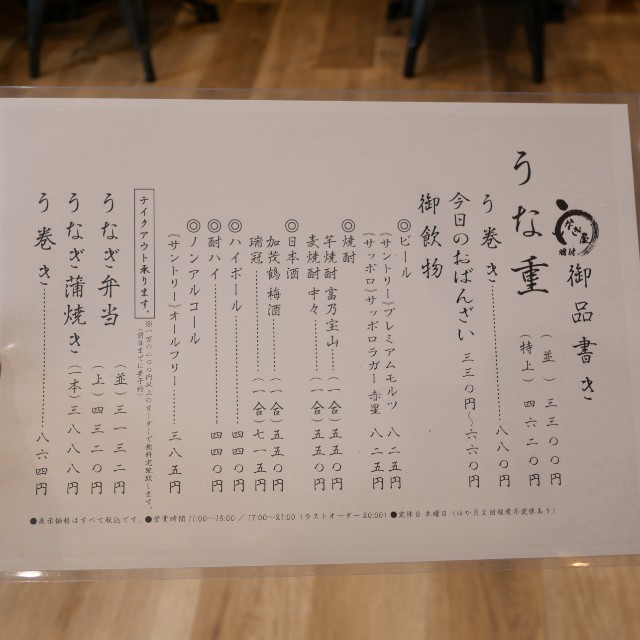 御品書き
うなぎ屋
うな重
（並）三三〇〇円
（特上）四六二〇円
う巻き……八八〇円
今日のおばんざい 三三〇円～六六〇円
御飲物
◎ビール
（サントリー）プレミアムモルツ 八二五円
（サッポロ）サッポロラガー 赤星 八二五円
◎焼酎
芋焼酎 富乃宝山……（一合）五五〇円
麦焼酎 中々……（一合）五五〇円
◎日本酒
加茂鶴 梅酒……（一合）五五〇円
瑞冠……（一合）七一五円
◎ハイボール……四四〇円
◎酎ハイ……四四〇円
◎ノンアルコール
（サントリー）オールフリー……三八五円
テイクアウト承ります。
うなぎ弁当
（並）三一三二円
（上）四三二〇円
うなぎ蒲焼き（一本）三八八八円
う巻き……八六四円
●表示価格はすべて税込です。●営業時間 11:00～15:00 / 17:00～21:00（ラストオーダー 20:00）●定休日 木曜日（ほか月2回程度不定休あり）